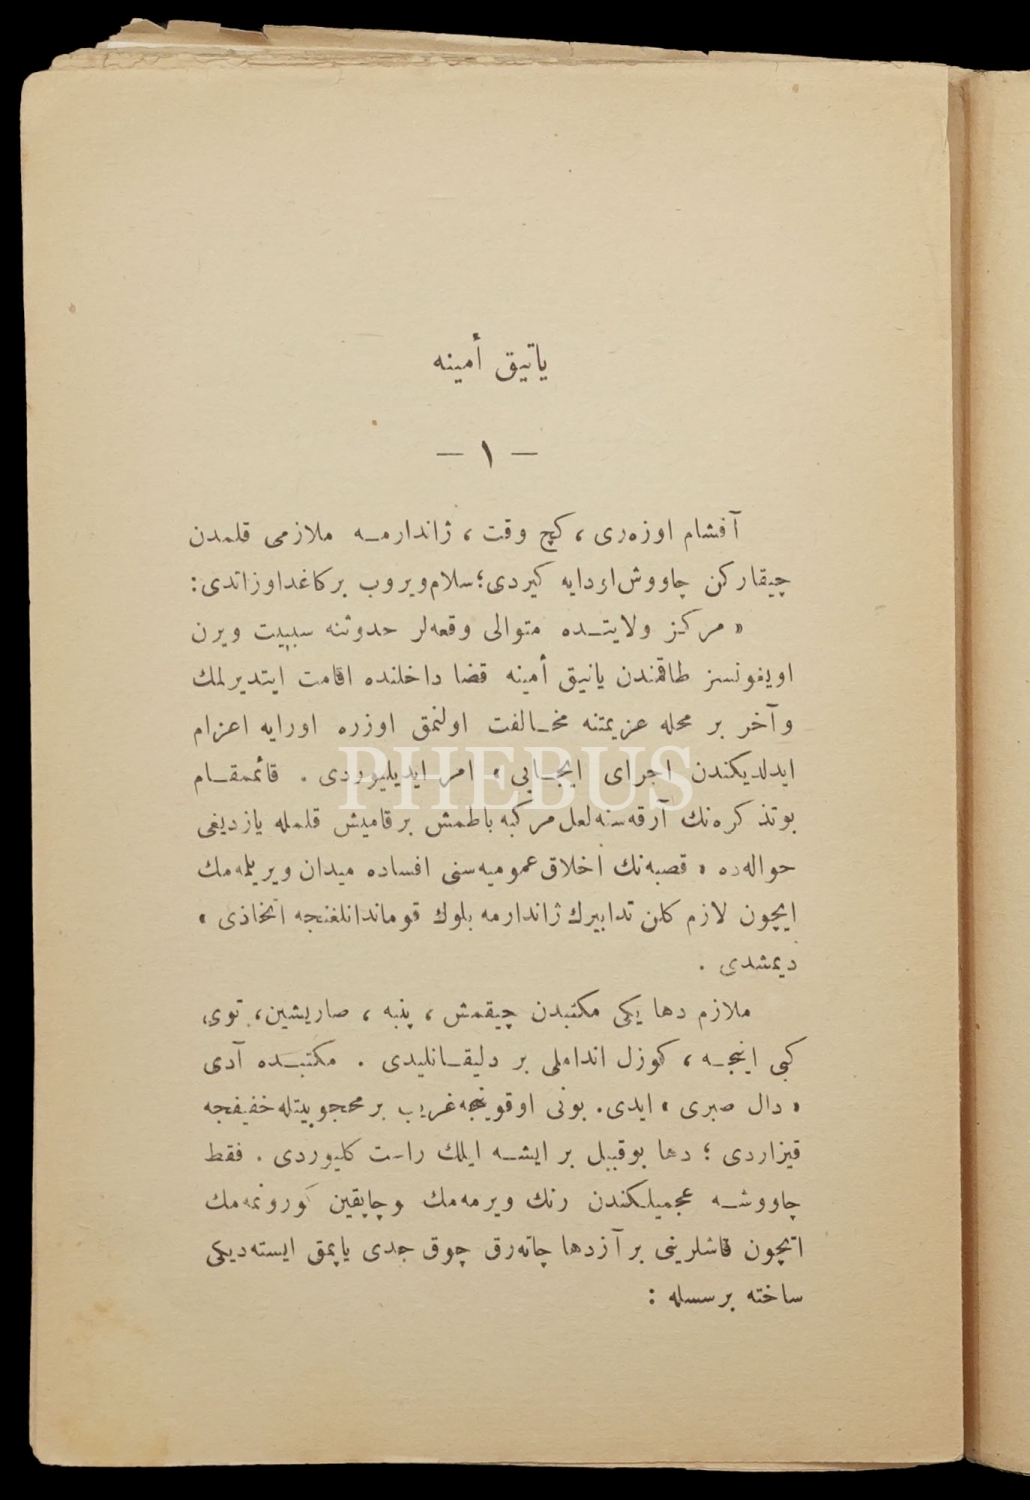 ياتيق أمينه
— ١ —
آقشام اوزەری ، كچ وقت ، ژاندارمــه ملازمی قلمدن
چيقاركن چاووش اردايه كيردی ؛ سلام ويروب بر كاغد اوزاتدی :
« مركز ولايتــده متوالی وقعه‌لر حدوثنه سببيت ويرن
اويغونسز طاقمندن ياتيق أمينه قضا داخلنده اقامت ايتديرلمك
و آخر بر محله عزيمتنه مخــالفت اولنمق اوزره اورايه اعزام
ايدلديكندن اجرای ايجــابی » امر ايديليوردی . قائممقــام
بو تذكره‌نك آرقه‌سنه لعل مركبه باطمش بر قاميش قلمله يازديغی
حواله‌ده « قصبه‌نك اخلاق عموميه‌سنی افساده ميدان ويريلمه‌مك
ايچون لازم كلن تدابيرك ژاندارمه بلوك قوماندانلغنجه اتخاذی »
ديمشدی .
ملازم دها يكی مكتبدن چيقمش ، پنبه ، صاريشين ، توی
كبی اينجــه ، كوزل انداملی بر دليقــانليدی . مكتبــده آدی
« دال صبری » ايدی . بونی اوقوينجه غريب بر محجوبيتله خفيفجه
قيزاردی ؛ دها بو قبيل بر ايشــه ايلك راست كليوردی . فقط
چاووشــه عجميلكندن رنك ويرمه‌مك و چاپقين كورونمه‌مك
ايچون قاشلرينی بر آز دها چاته‌رق چوق جدی ياپمق ايسته‌ديكی
ساخته بر سسله :
PHEBUS